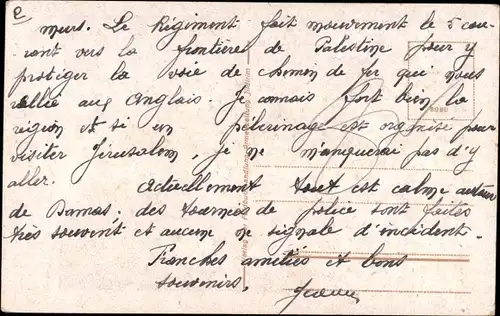 murs. Le Régiment fait mouvement le 5 cou-
rant vers la frontière de Palestine pour y
protéger la voie de chemin de fer qui nous
rallie aux Anglais. Je connais fort bien la
région et si un pèlerinage est organisé pour
visiter Jérusalem, je ne manquerai pas d'y
aller.
Actuellement tout est calme autour
de Damas; des tournées de police sont faites
très souvent et aucune ne signale d'incident.
Franches amitiés et bons
souvenirs,